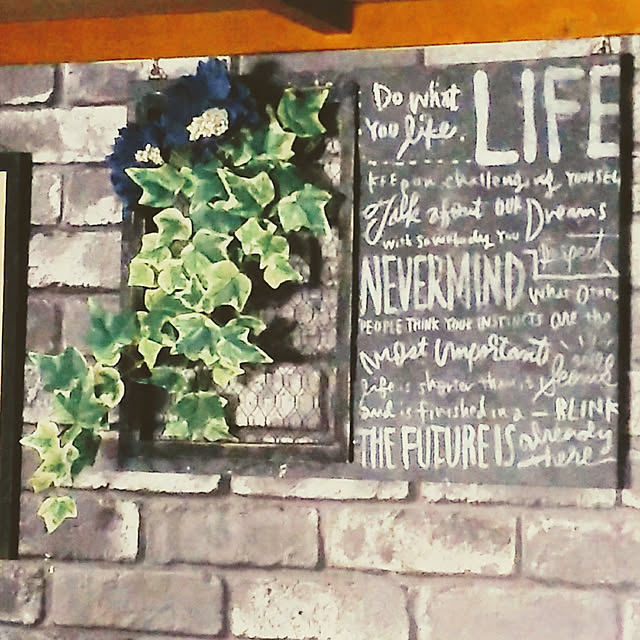 Do what
You like.
LIFE
KEEP on challenging YOURSELF
Talk about our Dreams
with somebody You
Respect
NEVERMIND
what Other
PEOPLE THINK YOUR INSTINCTS are the
Most Important
Life is shorter than it
and is finished in a — BLINK
THE FUTURE IS
already
here